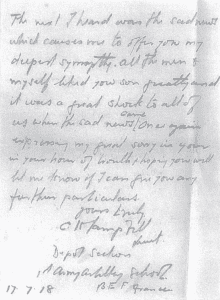 The next I heard was the sad news
which causes me to offer you my
deepest sympathy. all the men &
myself liked your son greatly and
it was a great shock to all of
us when the sad news came once again
expressing my great sorry in your
in your hour of trouble hoping you will
let me know if I can give you any
further particulars
yours truly
Lieut
Depot Section
1st Army Artillery School
17.7.18 B.E.F. France